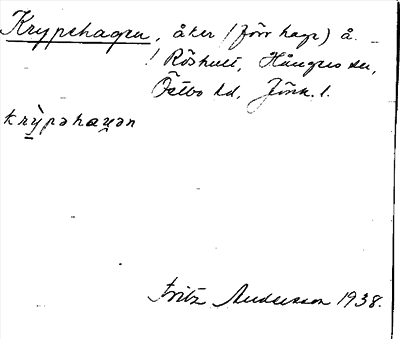 Krypehagen, åker (förr hage) å
! Röshult, Hångers sn,
Östbo hd, Jönk. l.
krỳpəhaɡən
Fritz Andersson 1938.